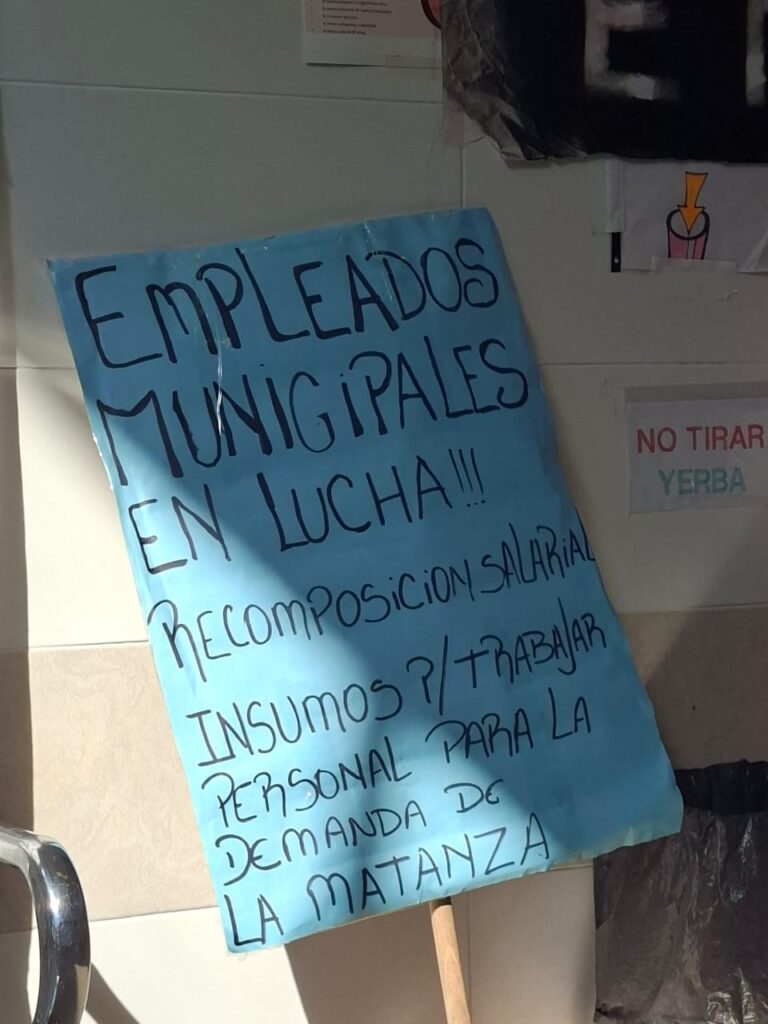 EMPLEADOS
MUNICIPALES
EN LUCHA!!!
RECOMPOSICION SALARIAL
INSUMOS P/TRABAJAR
PERSONAL PARA LA
DEMANDA DE
LA MATANZA
NO TIRAR
YERBA